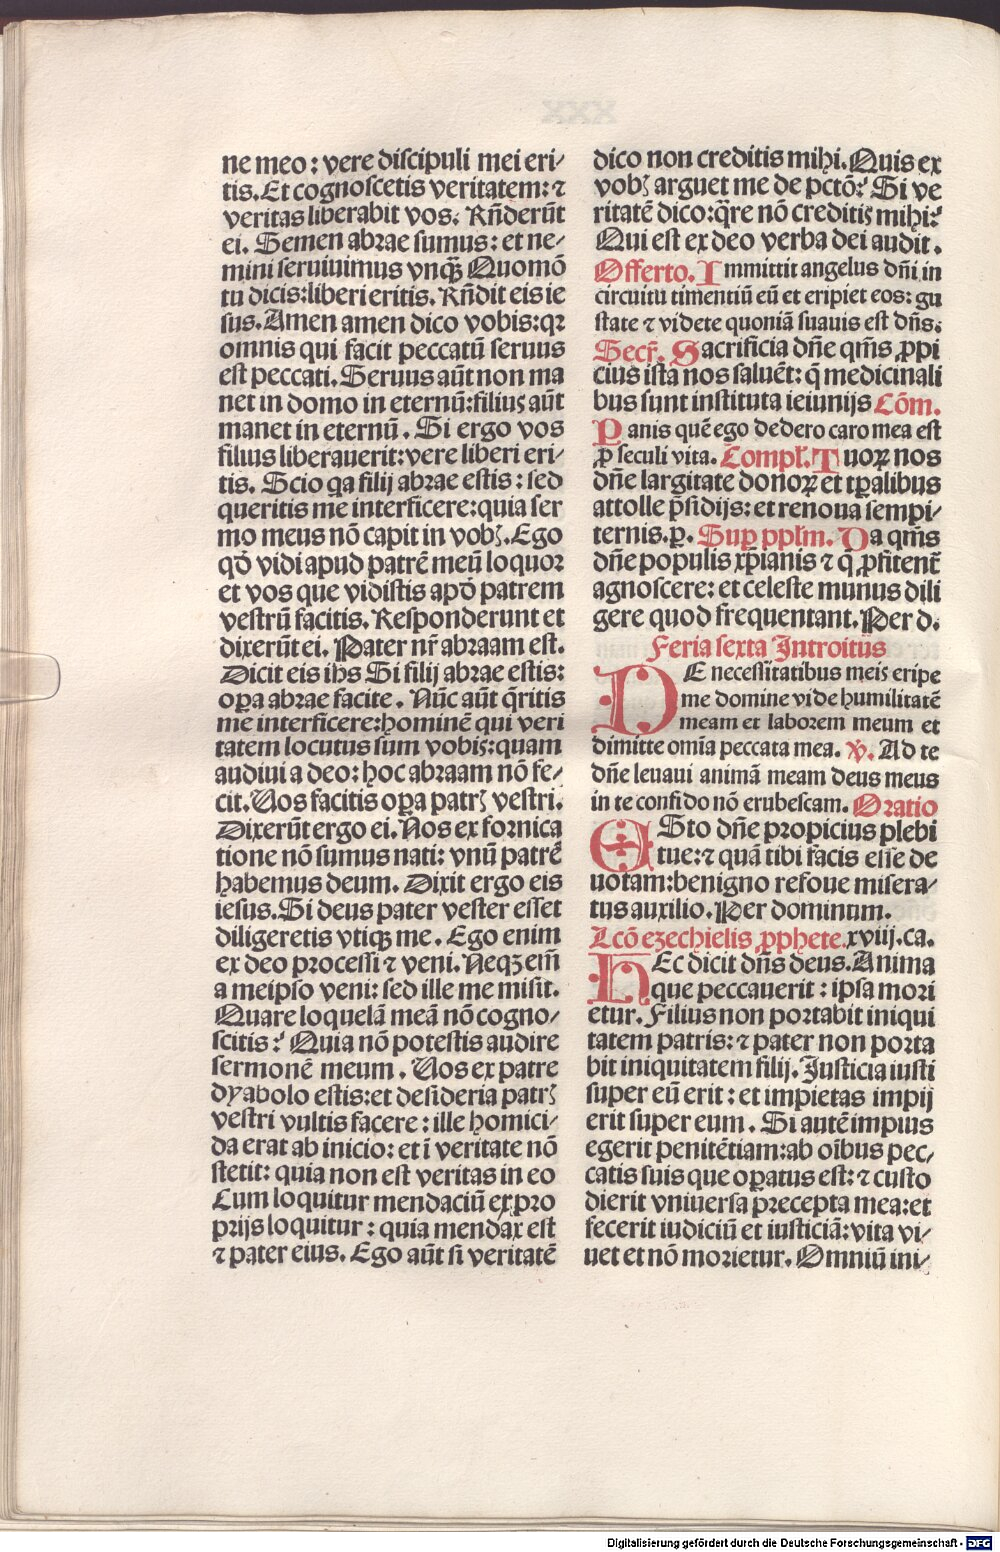 ne meo : vere discipuli mei eri⸗
tis. Et cognoscetis veritatem: ⁊
veritas liberabit vos. Rn̄derūt
ei. Semen abrae sumus : et ne⸗
mini seruiuimus vnqꝫ̄ Quomō
tu dicis:liberi eritis. Rn̄dit eis ie
sus. Amen amen dico vobis:qꝛ
omnis qui facit peccatū seruus
est peccati. Seruus aūt non ma
net in domo in eternū:filius aūt
manet in eternū . Si ergo vos
filius liberauerit:vere liberi eri⸗
tis. Scio qa filij abrae estis : sed
queritis me interficere:quia ser
mo meus nō capit in vobꝭ. Ego
qd̄ vidi apud patrē meū loquor
et vos que vidistis apd̄ patrem
vestrū facitis. Responderunt et
dixerūt ei. Pater nr̄ abraam est.
Dicit eis ihs Si filij abrae estis:
oꝑa abrae facite . Nūc aūt q̄ritis
me interficere:hominē qui veri
tatem locutus sum vobis:quam
audiui a deo: hoc abraam nō fe⸗
cit. Uos facitis oꝑa patrꝭ vestri.
Dixerūt ergo ei. Nos ex fornica
tione nō sumus nati: vnū patrē
habemus deum. Dixit ergo eis
iesus. Si deus pater vester esset
diligeretis vtiqꝫ me . Ego enim
ex deo processi ⁊ veni. Neqꝫ em̄
a meipso veni: sed ille me misit.
Quare loquelā meā nō cogno⸗
scitis ? Quia nō potestis audire
sermonē meum . Uos ex patre
dyabolo estis:et desideria patrꝭ
vestri vultis facere : ille homici⸗
da erat ab inicio: et ī veritate nō
stetit: quia non est veritas in eo
Cum loquitur mendaciū ex pro
prijs loquitur : quia mendax est
⁊ pater eius. Ego aūt si veritatē
dico non creditis mihi. Quis ex
vobꝭ arguet me de pctō? Si ve
ritatē dico:q̄re nō creditis mihi?
Qui est ex deo verba dei audit .
Offerto. Immittit angelus dn̄i in
circuitu timentiū eū et eripiet eos: gu
state ⁊ videte quoniā suauis est dn̄s.
Secr̄. Sacrificia dn̄e qm̄s ꝓpi
cius ista nos saluēt: q̄ medicinali
bus sunt instituta ieiunijs Cōm.
Panis quē ego dedero caro mea est
ꝓ seculi vita. Compl̄. Tuoꝝ nos
dn̄e largitate donoꝝ et tꝑalibus
attolle p̄sidijs: et renoua sempi⸗
ternis.p. Suꝑ ppl̄m. Da qm̄s
dn̄e populis xp̄ianis ⁊ q̄ ꝓfitent̄
agnoscere: et celeste munus dili
gere quod frequentant. Per d.
Feria sexta Introitus
DE necessitatibus meis eripe
me domine vide humilitatē
meam et laborem meum et
dimitte omīa peccata mea. ℣. Ad te
dn̄e leuaui animā meam deus meus
in te confido nō erubescam. Oratio
ESto dn̄e propicius plebi
tue:⁊ quā tibi facis esse de
uotam:benigno refoue misera⸗
tus auxilio. Per dominum.
Lcō ezechielis ꝓphete.xviij.ca.
HEc dicit dn̄s deus. Anima
que peccauerit : ipsa mori
etur. Filius non portabit iniqui
tatem patris: ⁊ pater non porta
bit iniquitatem filij. Justicia iusti
super eū erit : et impietas impij
erit super eum . Si autē impius
egerit penitētiam:ab oībus pec⸗
catis suis que oꝑatus est: ⁊ custo
dierit vniuersa precepta mea: et
fecerit iudiciū et iusticiā: vita vi⸗
uet et nō morietur. Omniū ini⸗
Digitalisierung gefördert durch die Deutsche Forschungsgemeinschaft - DFG